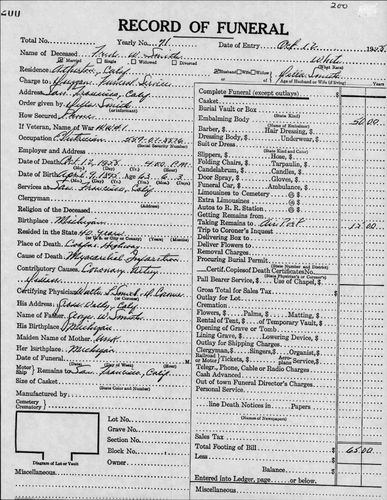 200
200
RECORD OF FUNERAL
Total No. Yearly No. 71 Date of Entry Oct. 12 1958
Name of Deceased Fred W. Smith White
Married Single Widowed Divorced (What Race)
Residence Atherton, Calif. Husband Wife Widow of Stella Smith
Age of Husband or Wife (if living) Years
Charge to Service
Address San Francisco, Calif
Order given by Stella Smith
How Secured Phone
If Veteran, Name of War WW1
Occupation
(Social Security Number)
Employer and Address
Date of Death Oct. 12, 1958 4:00 P.M.
Date of Birth April 9, 1895 Age 63 6 3
Services at San Francisco, Calif
Clergyman
Religion of the Deceased
Birthplace Michigan
Resided in the State 40 years
(U.S. or City or County) (Months)
Place of Death Highway
Cause of Death Myocardial Infarction
Contributory Causes Coronary Artery
Certifying Physician
(or Coroner)
His Address Grass Valley, Calif
Name of Father George W. Smith
His Birthplace Michigan
Maiden Name of Mother Unk.
Her birthplace Michigan
Date of Funeral M.
Motor Ship Remains to San Francisco, Calif
Size of Casket
(State Color and Number)
Manufactured by
Cemetery
Crematory
Lot No.
Grave No.
Section No.
Block No.
Owner
Diagram of Lot or Vault
Miscellaneous
Complete Funeral (except outlays) $
Casket
Burial Vault or Box
(State Kind)
Embalming Body 50.00
Barber, Hair Dressing, $
Dressing Body, Underwear, $
Suit or Dress
(State Kind and Color)
Slippers, $ Hose, $
Folding Chairs, $ Tarpaulin, $
Candelabrum, $ Candles, $
Door Spray, $ Gloves, $
Funeral Car, $ Ambulance, $
Limousines to Cemetery @ $
Extra Limousines @ $
Autos to R. R. Station @ $
Getting Remains from
Taking Remains to Air Port 15.00
Trip to Coroner's Inquest
Delivering Box to
Deliver Flowers to
Removal Charges
Procuring Burial Permit
(State Number and District)
Certif. Copies of Death Certificates No.
(State Physician's or Coroner's)
Pall Bearer Service, $ Use of Chapel, $
Gross Total for Sales Tax $
Outlay for Lot
Cremation
Flowers, $ Palms, $ Matting, $
Rental of Tent, $ of Temporary Vault, $
Opening of Grave or Tomb
Lining Grave, $ Lowering Device, $
Outlay for Shipping Charges
Clergyman, $ Singers, $ Organist, $
Railroad or Motor Tickets, $ Aero-Service, $
Teleg., Phone, Cable or Radio Charges
Cash Advanced
Out of town Funeral Director's Charges
Personal Service
line Death Notices in Papers
(Names of Newspapers)
Sales Tax
Total Footing of Bill $ 65.00
Less
Balance $
Entered into Ledger, page or below.
Miscellaneous